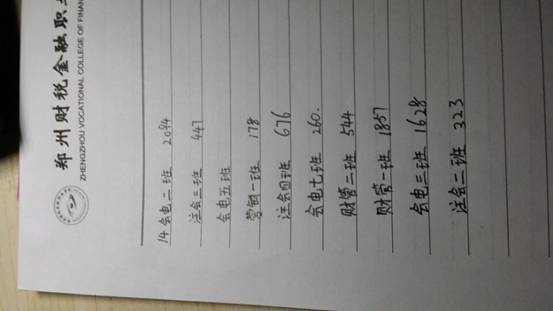 郑州财税金融职
ZHENGZHOU VOCATIONAL COLLEGE OF FINAN
14会电二班 2084
注会三班 447
会电五班
营销一班 178
注会四班 676
会电七班 260.
财管二班 544
财管一班 1857
会电三班 1628
注会二班 323